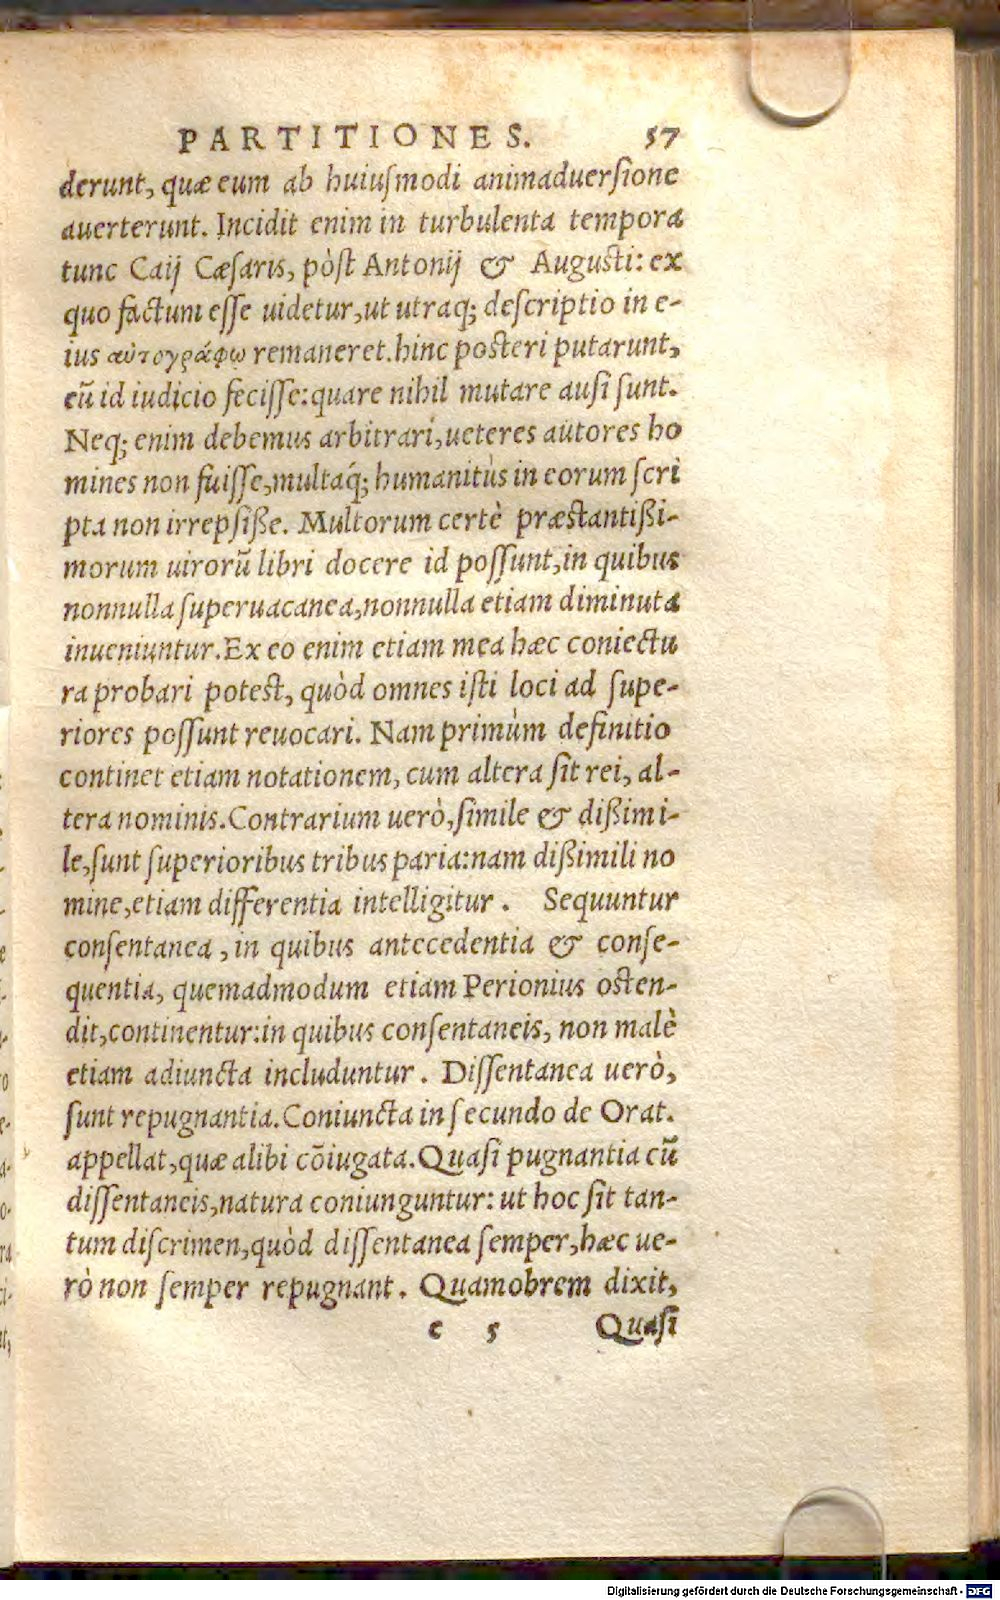 PARTITIONES. 57
derunt, quæ eum ab huiuſmodi animaduerſione
auerterunt. Incidit enim in turbulenta tempora
tunc Caij Cæſaris, pòſt Antonij & Auguſti: ex
quo factum eſſe uidetur, ut utraq; deſcriptio in e-
ius αὐτογράφω remaneret. hinc poſteri putarunt,
eũ id iudicio feciſſe: quare nihil mutare auſi ſunt.
Neq; enim debemus arbitrari, ueteres autores ho
mines non fuiſſe, multaq́; humanitùs in eorum ſcri
pta non irrepſiße. Multorum certè præſtantißi-
morum uirorũ libri docere id poſſunt, in quibus
nonnulla ſuperuacanea, nonnulla etiam diminuta
inueniuntur. Ex eo enim etiam mea hæc coniectu
ra probari poteſt, quòd omnes iſti loci ad ſupe-
riores poſſunt reuocari. Nam primùm definitio
continet etiam notationem, cum altera ſit rei, al-
tera nominis. Contrarium uerò, ſimile & dißimi-
le, ſunt ſuperioribus tribus paria: nam dißimili no
mine, etiam differentia intelligitur. Sequuntur
conſentanea, in quibus antecedentia & conſe-
quentia, quemadmodum etiam Perionius oſten-
dit, continentur: in quibus conſentaneis, non malè
etiam adiuncta includuntur. Diſſentanea uerò,
ſunt repugnantia. Coniuncta in ſecundo de Orat.
appellat, quæ alibi cõiugata. Quaſi pugnantia cũ
diſſentaneis, natura coniunguntur: ut hoc ſit tan-
tum diſcrimen, quòd diſſentanea ſemper, hæc ue-
rò non ſemper repugnant. Quamobrem dixit,
c 5 Quaſi
Digitalisierung gefördert durch die Deutsche Forschungsgemeinschaft - DFG